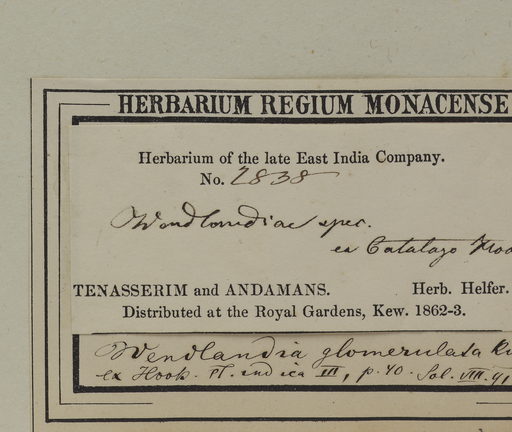 HERBARIUM REGIUM MONACENSE
Herbarium of the late East India Company.
No. 2838
Wendlandiae spec.
ex Catalogo
TENASSERIM and ANDAMANS. Herb. Helfer.
Distributed at the Royal Gardens, Kew. 1862-3.
Wendlandia glomerulata
ex Hook. Fl. indica III, p. 40.